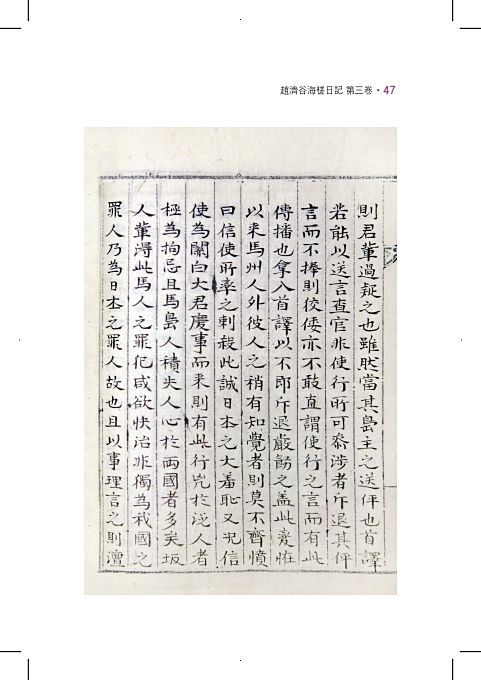 趙濟谷海槎日記 第三卷 • 47
則君輩過疑之也雖然當其島主之送伻也首譯
若能以送言查官非使行所可叅涉者斥退其伻
言而不捧則狡倭亦不敢直謂使行之言而有此
傳播也拿入首譯以不卽斥退嚴飭之盖此變恠
以來馬州人外彼人之稍有知覺者則莫不齊憤
曰信使所率之刺殺此誠日本之大羞恥又況信
使爲關白大君慶事而來則有此行兇於泛人者
極爲拘忌且馬島人積失人心於兩國者多矣坂
人輩得此馬人之罪犯咸欲快治非獨爲我國之
罪人乃爲日本之罪人故也且以事理言之則渲